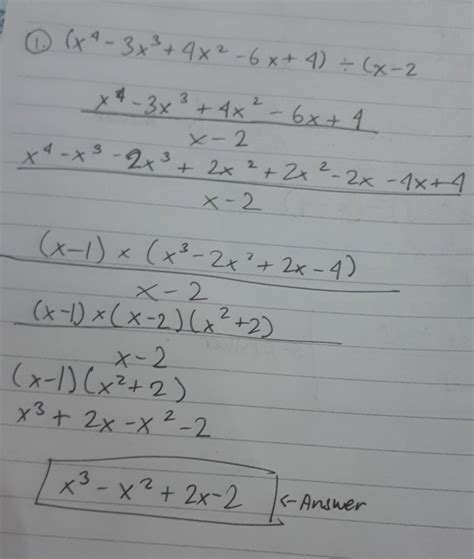 ① (x⁴ - 3x³ + 4x² - 6x + 4) ÷ (x - 2
x⁴ - 3x³ + 4x² - 6x + 4
x - 2
x⁴ - x³ - 2x³ + 2x² + 2x² - 2x - 4x + 4
x - 2
(x-1) × (x³ - 2x² + 2x - 4)
x - 2
(x-1) × (x-2)(x² + 2)
x - 2
(x-1)(x² + 2)
x³ + 2x - x² - 2
x³ - x² + 2x - 2 ← Answer